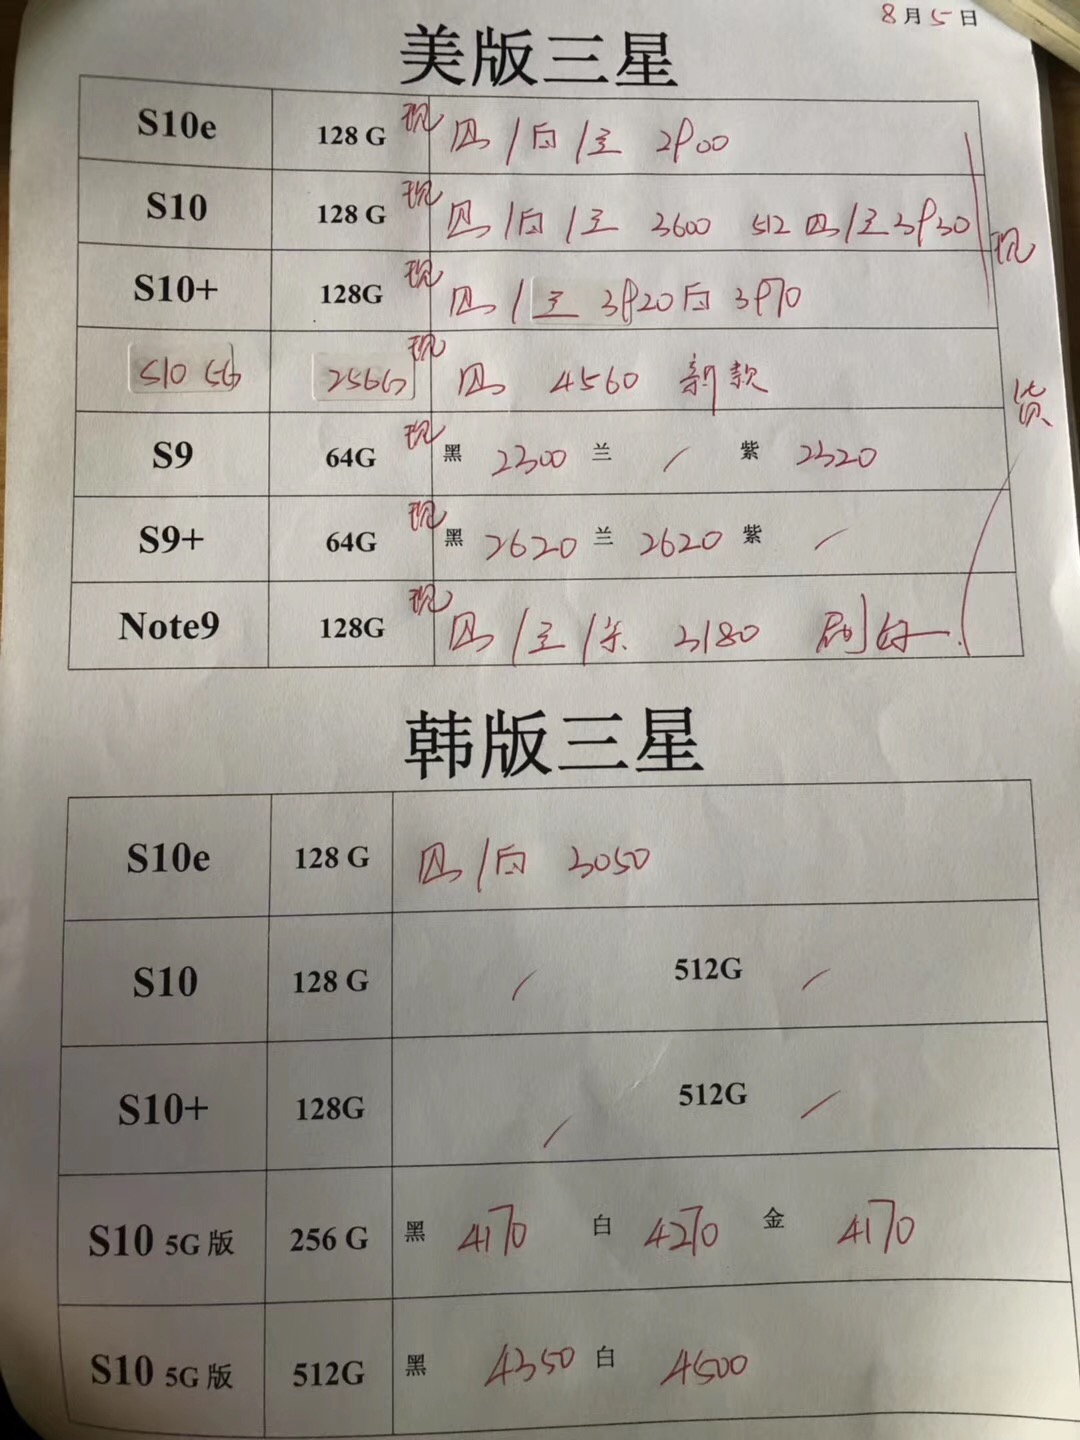 8月5日
美版三星
S10e 128 G 现 黑/白/兰 2900
S10 128 G 现 黑/白/兰 3600 512 黑/兰 3930
S10+ 128G 现 黑/兰 3920 白 3970
S10 5G 256G 现 黑 4560 新款
S9 64G 现 黑 2300 兰 / 紫 2320
S9+ 64G 现 黑 2620 兰 2620 紫 /
Note9 128G 现 黑/兰/紫 3180 刷好
现货
韩版三星
S10e 128 G 黑/白 3050
S10 128 G / 512G /
S10+ 128G / 512G /
S10 5G 版 256 G 黑 4170 白 4270 金 4170
S10 5G 版 512G 黑 4350 白 4500